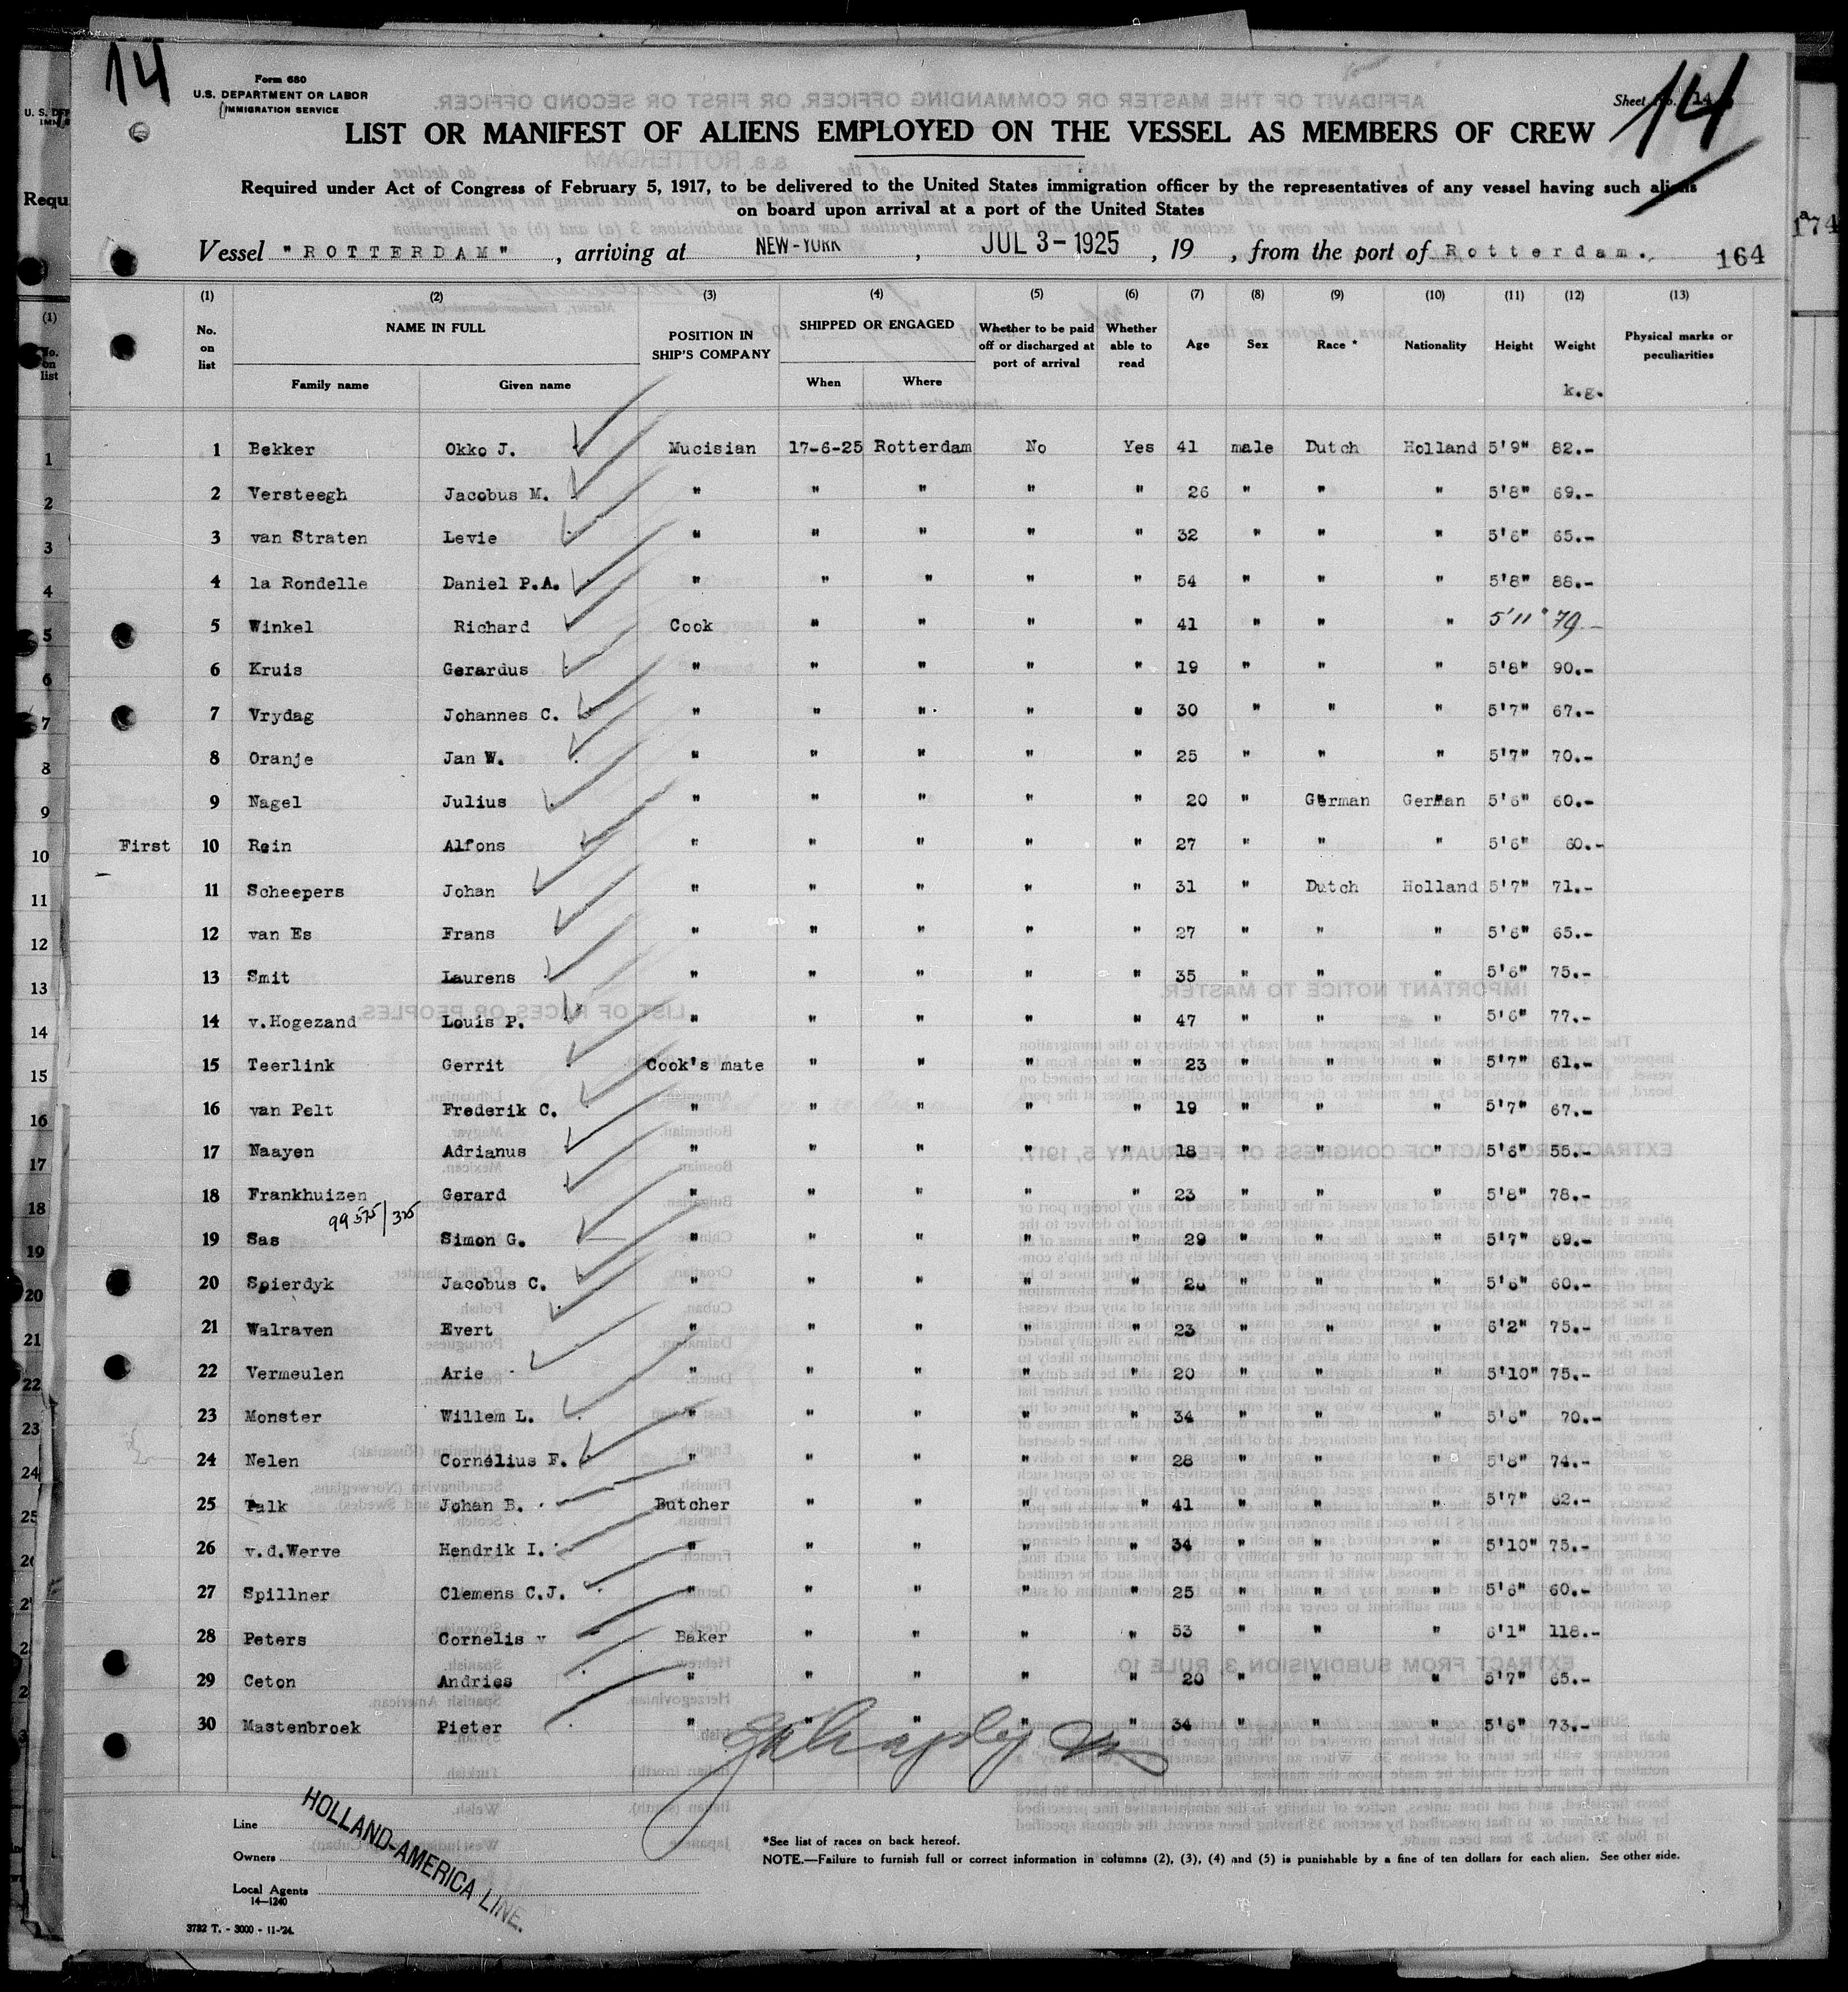 14
Form 680
U. S. DEPARTMENT OR LABOR
IMMIGRATION SERVICE
Sheet No. 14
14
LIST OR MANIFEST OF ALIENS EMPLOYED ON THE VESSEL AS MEMBERS OF CREW
Required under Act of Congress of February 5, 1917, to be delivered to the United States immigration officer by the representatives of any vessel having such aliens
on board upon arrival at a port of the United States
Vessel "ROTTERDAM", arriving at NEW-YORK, JUL 3-1925, 19 , from the port of Rotterdam. 164
(1) (2) (3) (4) (5) (6) (7) (8) (9) (10) (11) (12) (13)
No. on list NAME IN FULL POSITION IN SHIP'S COMPANY SHIPPED OR ENGAGED Whether to be paid off or discharged at port of arrival Whether able to read Age Sex Race * Nationality Height Weight Physical marks or peculiarities
Family name Given name When Where k.g.
1 Bekker Okko J. Mucisian 17-6-25 Rotterdam No Yes 41 male Dutch Holland 5'9" 82.-
2 Versteegh Jacobus M. " " " " " 26 " " " 5'8" 69.-
3 van Straten Levie " " " " " 32 " " " 5'6" 65.-
4 la Rondelle Daniel P.A. " " " " " 54 " " " 5'8" 88.-
5 Winkel Richard Cook " " " " 41 " " " 5'11" 79-
6 Kruis Gerardus " " " " " 19 " " " 5'8" 90.-
7 Vrydag Johannes C. " " " " " 30 " " " 5'7" 67.-
8 Oranje Jan W. " " " " " 25 " " " 5'7" 70.-
9 Nagel Julius " " " " " 20 " German German 5'6" 60.-
First 10 Rein Alfons " " " " " 27 " " " 5'6" 60.-
11 Scheepers Johan " " " " " 31 " Dutch Holland 5'7" 71.-
12 van Es Frans " " " " " 27 " " " 5'6" 65.-
13 Smit Laurens " " " " " 35 " " " 5'6" 75.-
14 v.Hogezand Louis P. " " " " " 47 " " " 5'6" 77.-
15 Teerlink Gerrit Cook's mate " " " " 23 " " " 5'7" 61.-
16 van Pelt Frederik C. " " " " " 19 " " " 5'7" 67.-
17 Naayen Adrianus " " " " " 18 " " " 5'6" 55.-
18 Frankhuizen Gerard " " " " " 23 " " " 5'8" 78.-
99575/325
19 Sas Simon G. " " " " " 29 " " " 5'7" 69.-
20 Spierdyk Jacobus C. " " " " " " " " 5'6" 60.-
21 Walraven Evert " " " " " 23 " " " 6'2" 75.-
22 Vermeulen Arie " " " " " 20 " " " 5'10" 75.-
23 Monster Willem L. " " " " " 34 " " " 5'8" 70.-
24 Nelen Cornélius F. " " " " " 28 " " " 5'8" 74.-
25 Talk Johan B. Butcher " " " " 41 " " " 5'7" 62.-
26 v.d.Werve Hendrik I. " " " " " 34 " " " 5'10" 75.-
27 Spillner Clemens C.J. " " " " " 25 " " " 5'6" 60.-
28 Peters Cornelis v Baker " " " " 53 " " " 6'1" 118.-
29 Ceton Andries " " " " " 20 " " " 5'7" 65.-
30 Mastenbroek Pieter " " " " " 34 " " " 5'6" 73.-
Line
HOLLAND-AMERICA LINE.
Owners
Local Agents
14-1240
3782 T. - 3000 - 11-'24.
*See list of races on back hereof.
NOTE.—Failure to furnish full or correct information in columns (2), (3), (4) and (5) is punishable by a fine of ten dollars for each alien. See other side.